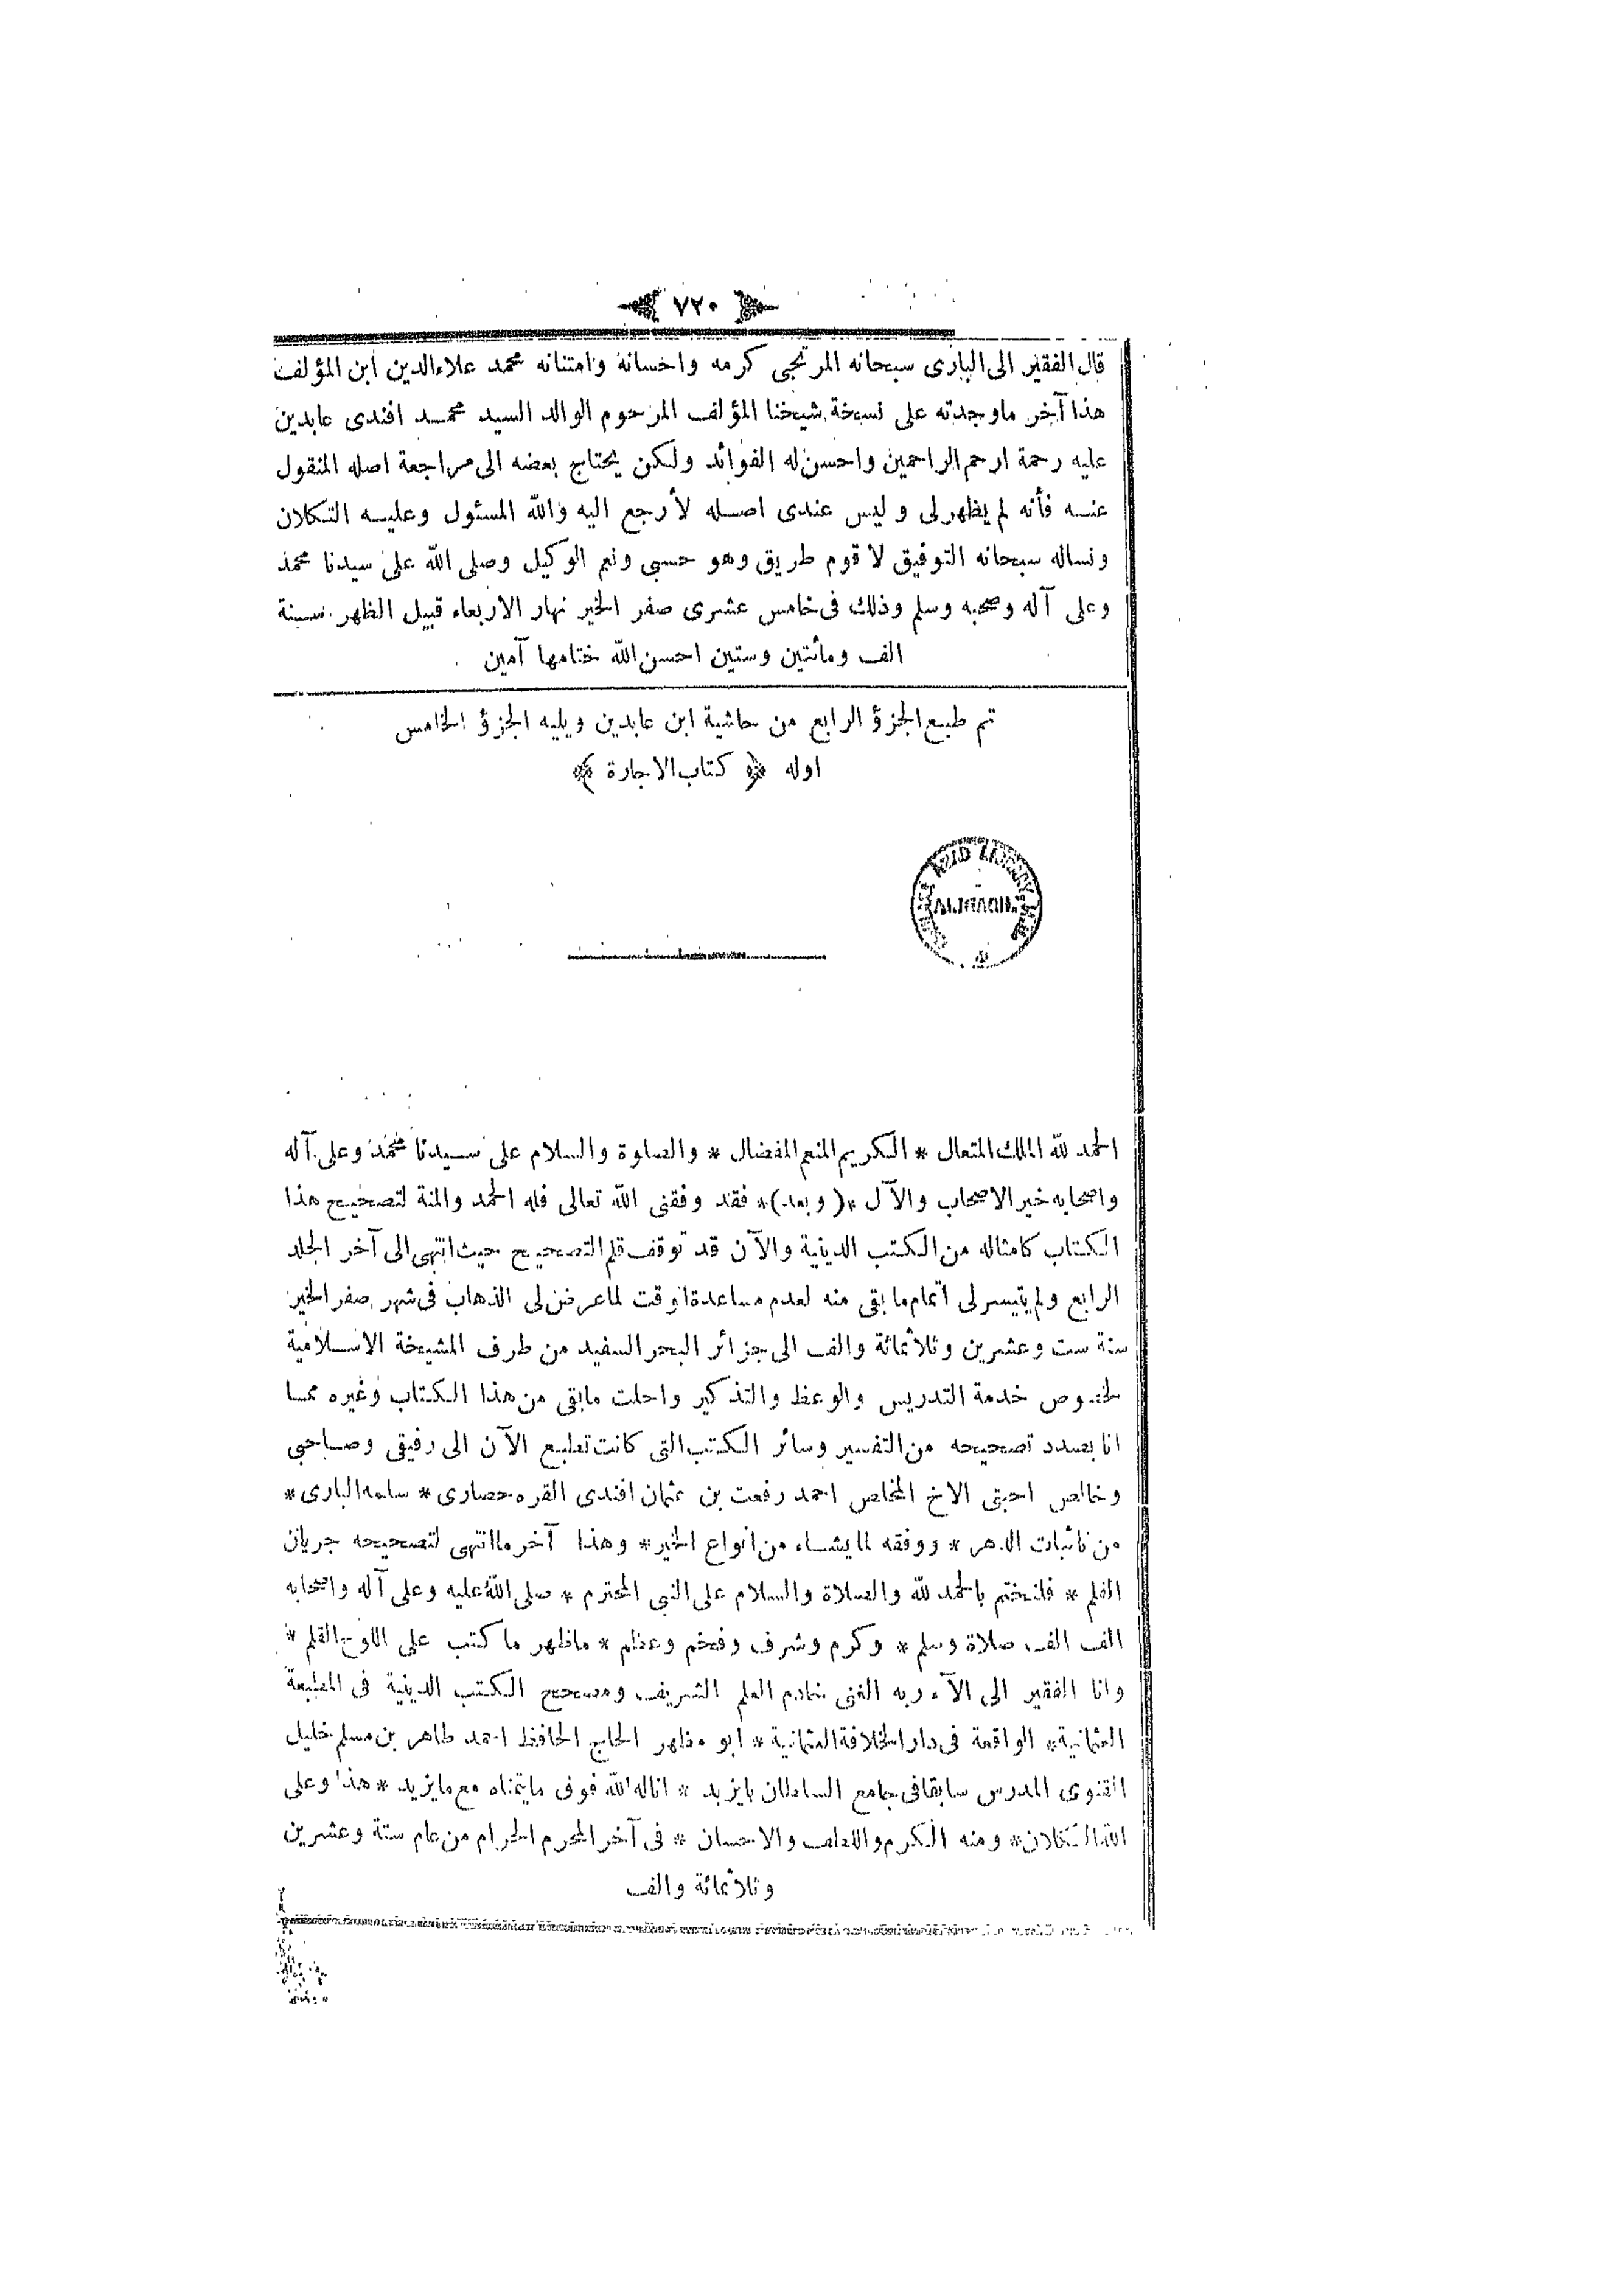 ٧٢٠
قال الفقير الى البارى سبحانه المرتجى كرمه واحسانه وامتنانه محمد علاءالدين ابن المؤلف
هذا آخر ماوجدته على نسخة شيخنا المؤلف المرحوم الوالد السيد محمد افندى عابدين
عليه رحمة ارحم الراحمين واحسن له الفوائد ولكن يحتاج بعضه الى مراجعة اصله المنقول
عنه فأنه لم يظهرلى وليس عندى اصله لأرجع اليه والله المسئول وعليه التكلان
ونساله سبحانه التوفيق لاقوم طريق وهو حسبى ونعم الوكيل وصلى الله على سيدنا محمد
وعلى آله وصحبه وسلم وذلك فى خامس عشرى صفر الخير نهار الاربعاء قبيل الظهر سنة
الف ومأتين وستين احسن الله ختامها آمين
تم طبع الجزؤ الرابع من حاشية ابن عابدين ويليه الجزؤ الخامس
اوله ﴿ كتاب الاجارة ﴾
ALIGARH
الحمد لله الملك المتعال * الكريم المنعم المفضال * والصلوة والسلام على سيدنا محمد وعلى آله
واصحابه خير الاصحاب والآل *(وبعد)* فقد وفقنى الله تعالى فله الحمد والمنة لتصحيح هذا
الكتاب كامثاله من الكتب الدينية والآن قد توقف قلم التصحيح حيث انتهى الى آخر الجلد
الرابع ولم يتيسر لى اتمام ما بقى منه لعدم مساعدة الوقت لما عرض لى الذهاب فى شهر صفر الخير
سنة ست وعشرين وثلاثمائة والف الى جزائر البحر السفيد من طرف المشيخة الاسلامية
لخصوص خدمة التدريس والوعظ والتذكير واحلت مابقى من هذا الكتاب وغيره مما
انا بصدد تصحيحه من التفسير وسائر الكتب التى كانت تطبع الآن الى رفيقى وصاحبى
وخالص احبتى الاخ المخلص احمد رفعت بن عثمان افندى القره حصارى * سلمه البارى *
من نائبات الدهر * ووفقه لما يشاء من انواع الخير * وهذا آخر ماانتهى لتصحيحه جريان
القلم * فلنختم بالحمد لله والصلاة والسلام على النبى المحترم * صلى الله عليه وعلى آله واصحابه
الف الف صلاة وسلم * وكرم وشرف وفخم وعظم * ماظهر ما كتب على اللوح القلم *
وانا الفقير الى الآء ربه الغنى خادم العلم الشريف ومصحح الكتب الدينية فى المطبعة
العثمانية * الواقعة فى دار الخلافة العثمانية * ابو مظهر الحاج الحافظ احمد طاهر بن مسلم خليل
القنوى المدرس سابقا فى جامع السلطان بايزيد * اناله الله فوق مايتمناه مع مايزيد * هذا وعلى
الله التكلان * ومنه الكرم واللطف والاحسان * فى آخر المحرم الحرام من عام ستة وعشرين
وثلاثمائة والف